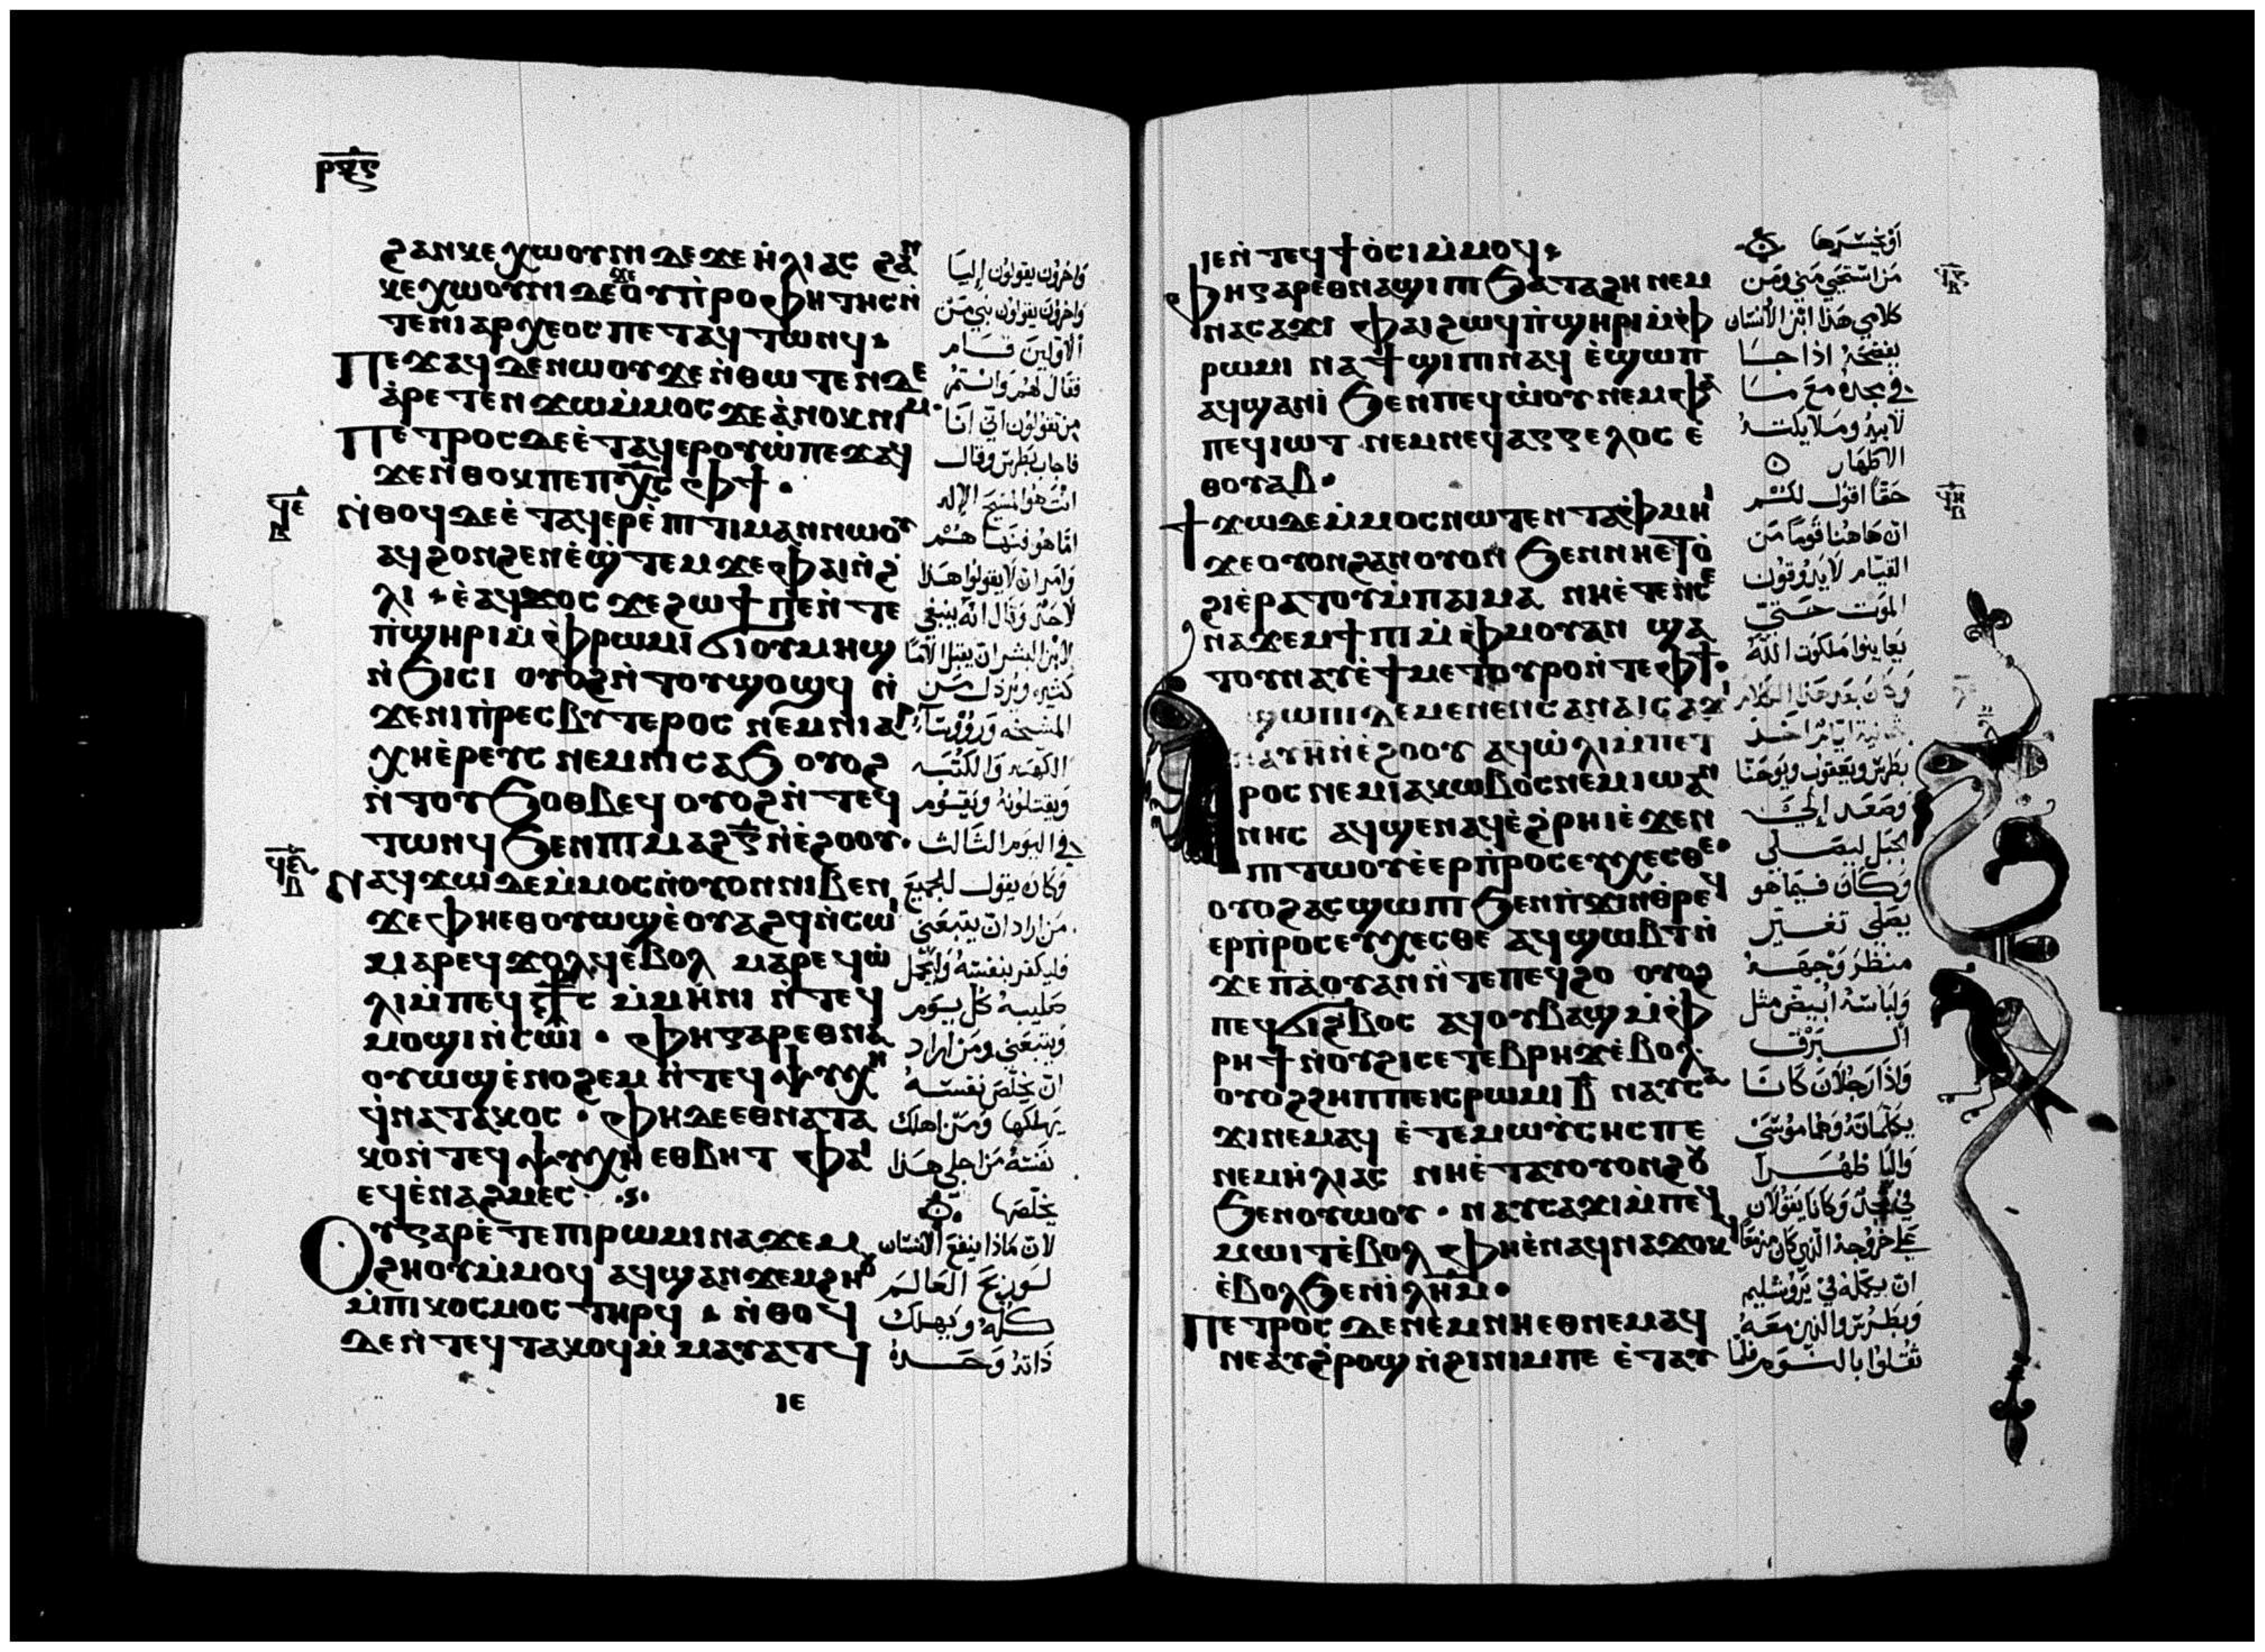 ⲣϥⲋ
ϩⲁⲛⲕⲉⲭⲱⲟⲩⲛⲓ ⲇⲉ ϫⲉ ⲏ̀ⲗⲓⲁⲥ ϩⲁⲛ
ⲕⲉⲭⲱⲟⲩⲛⲓ ⲇⲉ ϫⲉ ⲟⲩⲡ̀ⲣⲟⲫⲏⲧⲏⲥ ⲛ̀
ⲧⲉ ⲛⲓⲁⲣⲭⲉⲟⲥ ⲡⲉⲧⲁϥⲧⲱⲛϥ
Ⲡⲉϫⲁϥ ⲇⲉ ⲛⲱⲟⲩ ϫⲉ ⲛ̀ⲑⲱⲧⲉⲛ ⲇⲉ
ⲁ̀ⲣⲉⲧⲉⲛϫⲱ ⲙ̀ⲙⲟⲥ ϫⲉ ⲁ̀ⲛⲟⲕ ⲛⲓⲙ
Ⲡⲉⲧⲣⲟⲥ ⲇⲉ ⲉ̀ⲧⲁϥⲉⲣⲟⲩⲱ̀ ⲡⲉϫⲁϥ
ϫⲉ ⲛ̀ⲑⲟⲕ ⲡⲉ ⲡⲭ̅ⲥ̅ ⲫϯ
ϥⲉ
Ⲛ̀ⲑⲟϥ ⲇⲉ ⲉ̀ⲧⲁϥⲉⲣⲉ̀ⲡⲓⲧⲓⲙⲁⲛ ⲛⲱⲟⲩ
ⲁϥϩⲟⲛϩⲉⲛ ⲉ̀ϣ̀ⲧⲉⲙϫⲉ ⲫⲁⲓ ⲛ̀ϩ̀
ⲗⲓ ⲉ̀ⲁϥϫⲟⲥ ϫⲉ ϩⲱϯ ⲡⲉ ⲛ̀ⲧⲉ
ⲡ̀ϣⲏⲣⲓ ⲙ̀ⲫⲣⲱⲙⲓ ϭⲓ ⲟⲩⲙⲏϣ
ⲛ̀ϧⲓⲥⲓ ⲟⲩⲟϩ ⲛ̀ⲧⲟⲩϣⲟϣϥ ⲛ̀
ϫⲉ ⲛⲓⲡ̀ⲣⲉⲥⲃⲩⲧⲉⲣⲟⲥ ⲛⲉⲙ ⲛⲓⲁⲣ
ⲭⲏⲉ̀ⲣⲉⲩⲥ ⲛⲉⲙ ⲛⲓⲥⲁϧ ⲟⲩⲟϩ
ⲛ̀ⲧⲟⲩϧⲟⲑⲃⲉϥ ⲟⲩⲟϩ ⲛ̀ⲧⲉϥ
ⲧⲱⲛϥ ϧⲉⲛ ⲡⲓⲙⲁϩⲅ̅ ⲛ̀ⲉ̀ϩⲟⲟⲩ
Ⲛⲁϥϫⲱ ⲇⲉ ⲙ̀ⲙⲟⲥ ⲛ̀ⲟⲩⲟⲛ ⲛⲓⲃⲉⲛ
ϫⲉ ⲫⲏⲉⲑⲟⲩⲱϣ ⲉ̀ⲟⲩⲁϩϥ ⲛ̀ⲥⲱⲓ
ⲙⲁⲣⲉϥϫⲟⲗϥ ⲉ̀ⲃⲟⲗ ⲙⲁⲣⲉϥⲱ̀
ⲗⲓ ⲙ̀ⲡⲉϥⲥ̅ⲧ̅ⲥ̅ ⲙ̀ⲙⲏⲛⲓ ⲛ̀ⲧⲉϥ
ⲙⲟϣⲓ ⲛ̀ⲥⲱⲓ ⲫⲏ ⲅⲁⲣ ⲉⲑⲛⲁ
ⲟⲩⲱϣ ⲉ̀ⲛⲟϩⲉⲙ ⲛ̀ⲧⲉϥⲯⲩⲭⲏ
ϥ̀ⲛⲁⲧⲁⲕⲟⲥ ⲫⲏ ⲇⲉ ⲉⲑⲛⲁⲧⲁ
ⲕⲟ ⲛ̀ⲧⲉϥⲯⲩⲭⲏ ⲉⲑⲃⲏⲧ ⲫⲁⲓ
ⲉϥⲉ̀ⲛⲁϩⲙⲉⲥ
Ⲟⲩ ⲅⲁⲣ ⲉ̀ⲧⲉ ⲡⲓⲣⲱⲙⲓ ⲛⲁϫⲉⲙ
ϩⲏⲟⲩ ⲙ̀ⲙⲟϥ ⲁϥϣⲁⲛϫⲉⲙϩⲏⲟⲩ
ⲙ̀ⲡⲓⲕⲟⲥⲙⲟⲥ ⲧⲏⲣϥ ⲛ̀ⲑⲟϥ
ⲇⲉ ⲛ̀ⲧⲉϥⲧⲁⲕⲟϥ ⲙ̀ⲙⲁⲩⲁⲧϥ
ⲓⲉ
وَاخرون يقولون إليَا
وَاخرون يقولون نبي مَن
الاولين قَام
فقال لهمُ وَانتمُ
مِن تقولون اني انَا
فاجاب بطرس وقال
انتَ هُوَ المسَيح الإله
امَّا هُو فنهَاهُم
وَامر ان لا يقولوا هَذا
لاحَد وَقال انه ينبغي
لابن البشر ان يقبل الامًا
كثيره ويرذل مَن
المشيخه وَرووسَاء
الكهنه وَالكتبَه
وَيقتلونهُ وَيقوم
في اليوَم الثالث
وَكان يقول للجميعَ
مَن اراد ان يتبعَني
فليكفر بنفسهُ وَليحمل
صليبه كل يوَم
وَيتبعَني ومَن اراد
ان يخلص نفسهُ
يهلكها وَمَن اهلك
نفسَهُ مَن اجلي هَذا
يخلصَها
لان مَاذا ينفعَ الانسان
لوَ ربحَ العَالمَ
كلهُ وَيهلك
ذاته وَحده
ⲓⲉ ⲛ̀ⲧⲉϥϯⲟ̀ⲥⲓ ⲙ̀ⲙⲟϥ
Ⲫⲏ ⲅⲁⲣ ⲉⲑⲛⲁϣⲓⲡⲓ ϧⲁⲧⲁϩⲏ ⲛⲉⲙ
ⲛⲁⲥⲁϫⲓ ⲫⲁⲓ ϩⲱϥ ⲡ̀ϣⲏⲣⲓ ⲙ̀ⲫ
ⲣⲱⲙⲓ ⲛⲁϯϣⲓⲡⲓ ⲛⲁϥ ⲉ̀ϣⲱⲡ
ⲁϥϣⲁⲛⲓ̀ ϧⲉⲛ ⲡⲉϥⲱ̀ⲟⲩ ⲛⲉⲙ ⲫⲁ
ⲡⲉϥⲓⲱⲧ ⲛⲉⲙ ⲛⲉϥⲁⲅⲅⲉⲗⲟⲥ ⲉ
ⲑⲟⲩⲁⲃ
Ϯϫⲱ ⲇⲉ ⲙ̀ⲙⲟⲥ ⲛⲱⲧⲉⲛ ⲧⲁⲫⲙⲏⲓ
ϫⲉ ⲟⲩⲟⲛ ϩⲁⲛⲟⲩⲟⲛ ϧⲉⲛ ⲛⲏⲉⲧⲟ̀
ϩⲓ ⲉ̀ⲣⲁⲧⲟⲩ ⲙ̀ⲡⲁⲓⲙⲁ ⲛⲏⲉ̀ⲧⲉ ⲛ̀ⲥⲉ
ⲛⲁϫⲉⲙϯⲡⲓ ⲙ̀ⲫⲙⲟⲩ ⲁⲛ ϣⲁ
ⲧⲟⲩⲛⲁⲩ ⲉ̀ϯⲙⲉⲧⲟⲩⲣⲟ ⲛ̀ⲧⲉ ⲫϯ
ϣⲱⲡⲓ ⲇⲉ ⲙⲉⲛⲉⲛⲥⲁ ⲛⲁⲓⲥⲁϫⲓ
ⲛⲁⲩ ⲏ̅ ⲛ̀ⲉ̀ϩⲟⲟⲩ ⲁϥⲱ̀ⲗⲓ ⲙ̀ⲡⲉⲧ
ⲣⲟⲥ ⲛⲉⲙ ⲓⲁⲕⲱⲃⲟⲥ ⲛⲉⲙ ⲓⲱⲁⲛ
ⲛⲏⲥ ⲁϥϣⲉⲛⲁϥ ⲉ̀ϩ̀ⲣⲏⲓ ⲉ̀ϫⲉⲛ
ⲡⲓⲧⲱⲟⲩ ⲉ̀ⲉⲣⲡ̀ⲣⲟⲥⲉⲩⲭⲉⲥⲑⲉ
ⲟⲩⲟϩ ⲁⲥϣⲱⲡⲓ ϧⲉⲛ ⲡ̀ϫⲓⲛⲑ̀ⲣⲉϥ
ⲉⲣⲡ̀ⲣⲟⲥⲉⲩⲭⲉⲥⲑⲉ ⲁϥϣⲱⲃⲧ ⲛ̀
ϫⲉ ⲡ̀ⲁⲟⲩⲁⲛ ⲛ̀ⲧⲉ ⲡⲉϥϩⲟ ⲟⲩⲟϩ
ⲡⲉϥϭⲓϩⲃⲟⲥ ⲁϥⲟⲩⲃⲁϣ ⲙ̀ⲫ
ⲣⲏϯ ⲛ̀ⲟⲩϩⲓⲥⲉⲧⲉⲃⲣⲏϫ ⲉ̀ⲃⲟⲗ
ⲟⲩⲟϩ ϩⲏⲡⲡⲉ ⲓⲥ ⲣⲱⲙⲓ ⲃ̅ ⲛⲁⲩⲥⲁ
ϫⲓ ⲛⲉⲙⲁϥ ⲉ̀ⲧⲉ ⲙⲱⲩⲥⲏⲥ ⲡⲉ
ⲛⲉⲙ ⲏ̀ⲗⲓⲁⲥ ⲛⲏⲉ̀ⲧⲁⲩⲟⲩⲟⲛϩⲟⲩ
ϧⲉⲛ ⲟⲩⲱⲟⲩ ⲛⲁⲩⲥⲁϫⲓ ⲙ̀ⲡⲉϥ
ⲙⲱⲓⲧ ⲉ̀ⲃⲟⲗ ⲫⲏⲉ̀ⲛⲁϥⲛⲁϫⲟⲕϥ
ⲉ̀ⲃⲟⲗ ϧⲉⲛ ⲓ̅ⲗ̅ⲏ̅ⲙ̅
Ⲡⲉⲧⲣⲟⲥ ⲇⲉ ⲛⲉⲙ ⲛⲏⲉⲑⲛⲉⲙⲁϥ
ⲛⲉⲁⲩϩ̀ⲣⲟϣ ⲛ̀ϩⲓⲛⲓⲙ ⲡⲉ ⲉ̀ⲧⲁⲩ
اوَ يخسَرهَا
مَن استَحيي مَني ومَن
كلامي هَذا ابن الانسَان
يفضحَهُ اذا جَا
في مجده مَع مَا
لابيه ومَلايكته
الاطهَار
حَقًا اقول لكم
ان هَاهُنا قومًا مَن
القيام لا يذوقون
الموَت حَتى
يعَاينوا مَلكوَت اللهُ
وَكان بعَد هَذا الكلام
ثمانية ايام اخَذ
بطرس وَيعَقوب وَيوحَنا
وَصَعَد إلى
الجَبَل ليصَلي
وَكان فيمَا هو
يصَلي تغيَّر
منظر وَجهَهُ
وَلباسَهُ ابيض مثل
البَرق
وَاذا رَجلان كانا
يكلمَانهُ وَهمَا موسَى
وَاليَا ظهَرا
في مجد وَكانا يقولان
عَلى خروجه الذي كان مزمعًا
ان يكملهُ في يروشليم
وَبطرس والذين معَهُ
ثقلوا بالنوَم فلمَا